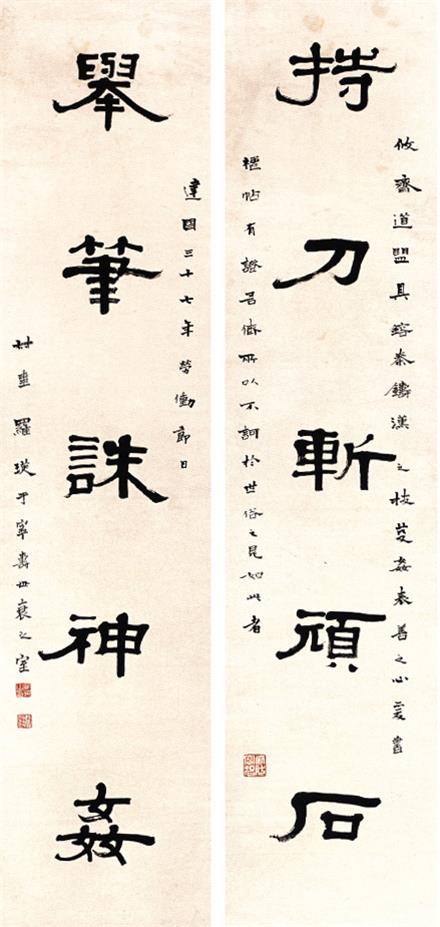 持刀斬頑石
攸齋道盟具鎔秦鑄漢之技芟姦表善之心爰書
楹帖有證吾儕所以不訶於世俗之見如此者
舉筆誅神姦
建國三十七年勞働節日
羅瑛于寧壽世之室